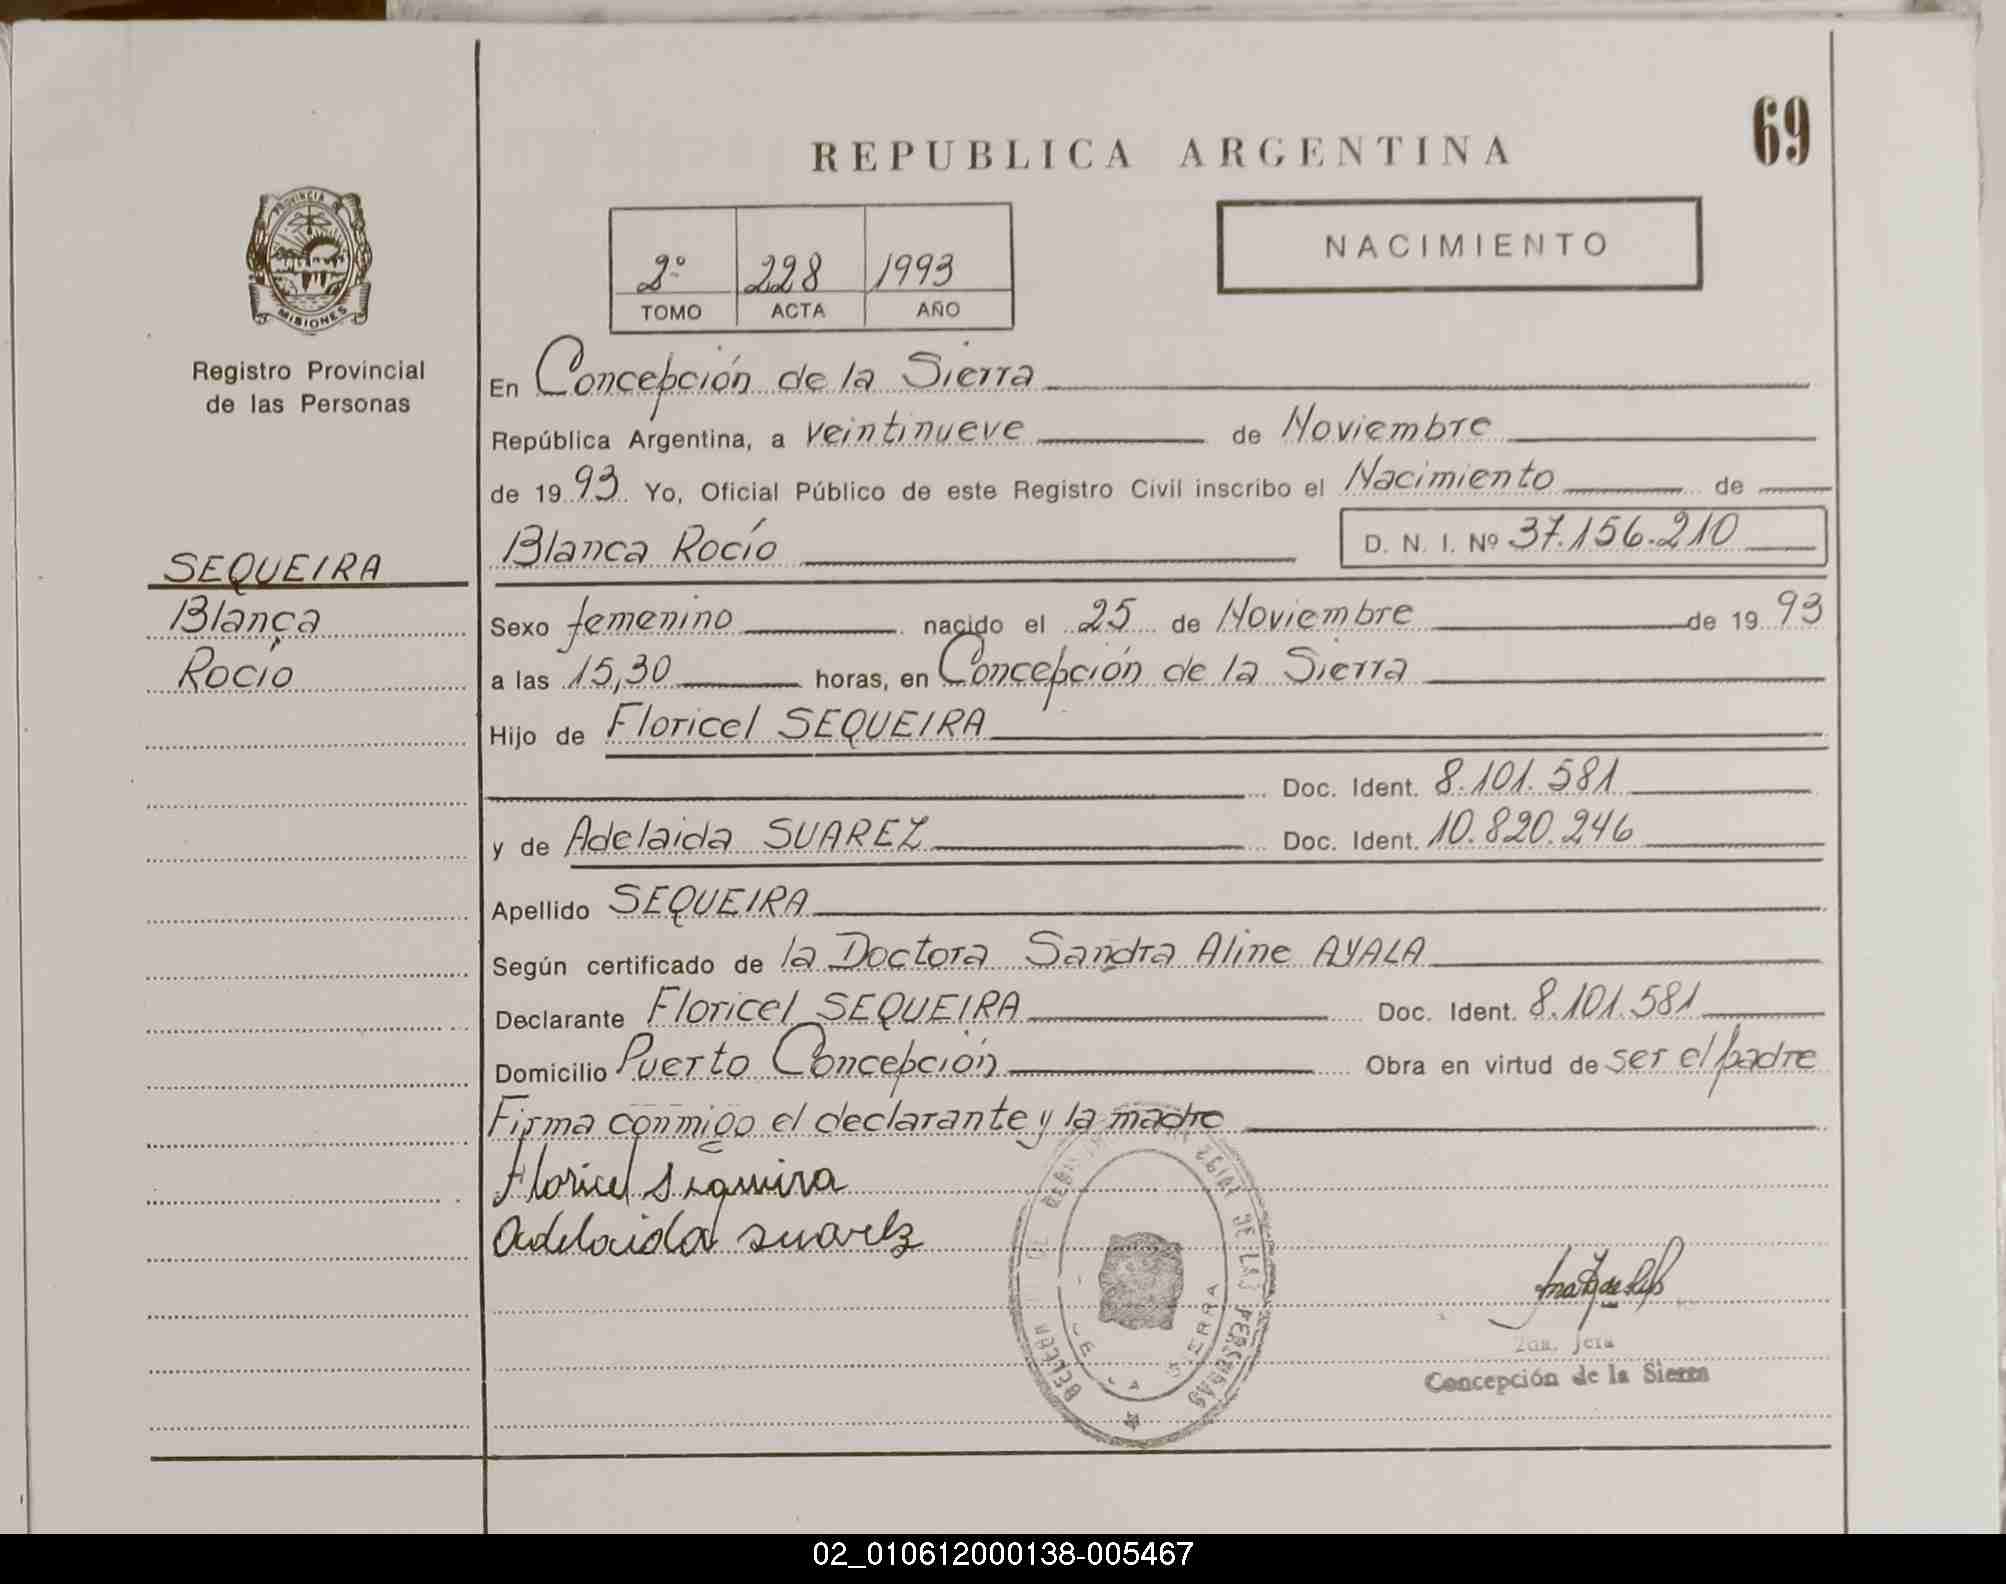 69
REPUBLICA ARGENTINA
NACIMIENTO
PROVINCIA DE
MISIONES
Registro Provincial
de las Personas
2º 228 1993
TOMO ACTA AÑO
En Concepción de la Sierra
República Argentina, a veintinueve de Noviembre
de 1993 Yo, Oficial Público de este Registro Civil inscribo el Nacimiento de
Blanca Rocío D. N. I. Nº 37.156.210
SEQUEIRA
Blanca
Rocío
Sexo femenino nacido el 25 de Noviembre de 1993
a las 15,30 horas, en Concepción de la Sierra
Hijo de Floricel SEQUEIRA
Doc. Ident. 8.101.581
y de Adelaida SUAREZ Doc. Ident. 10.820.246
Apellido SEQUEIRA
Según certificado de la Doctora Sandra Aline AYALA
Declarante Floricel SEQUEIRA Doc. Ident. 8.101.581
Domicilio Puerto Concepción Obra en virtud de ser el padre
Firma conmigo el declarante y la madre
Floricel Sequeira
Adelaida Suarez
DE LAS PERSONAS
DE LA SIERRA
Concepción de la Sierra
02_010612000138-005467